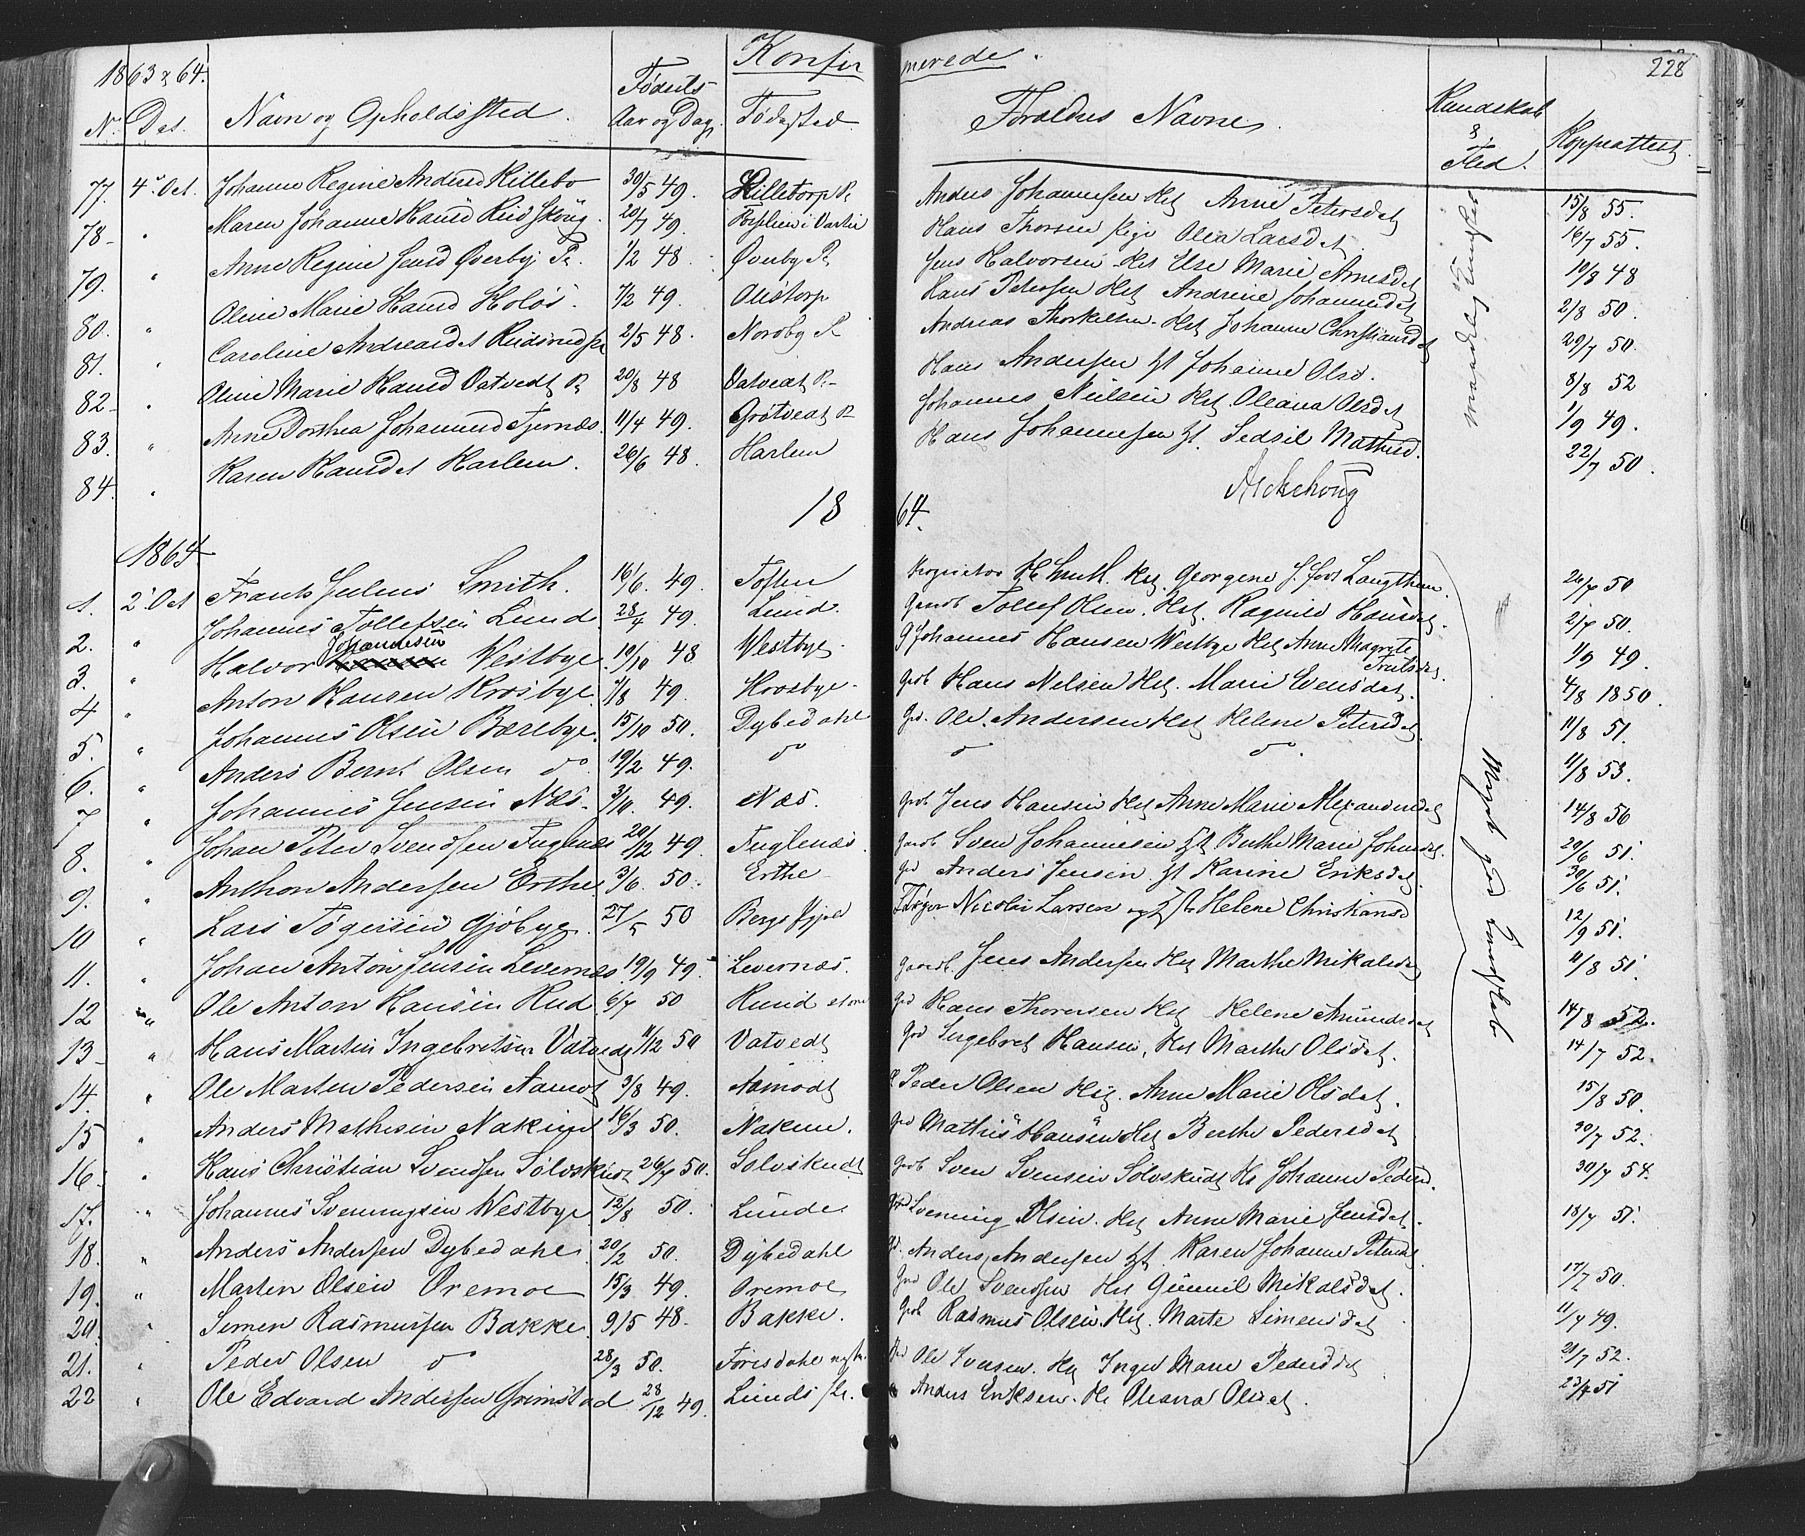 1863 & 64. Konfirmerede. 228
N. Dat. Navn og Opholdssted. Fødsels Aar og Dag. Fødested. Forældres Navne. Kundskab & Flid. Koppeattest
77. 4. Oct. Johanne Regine Andersd Killebo 30/5 49. Lilletorp Pl Anders Johannesen Hst Anne Petersdat 15/8 55.
78 - " Maren Johanne Hansd Skoug. 20/7 49. i Vartei Hans Thorsen Pige Olea Larsdat 16/7 55.
79. " Anne Regine Jensd Øverby Pl. 1/2 48. Øverby Pl Jens Halvorsen Hst Else Marie Arnesdat 10/8 48
80. " Oline Marie Hansd Holøs. 7/2 49. Olistorp Hans Petersen Hst Andrine Johannesdat 2/8 50.
81. " Caroline Andreasdat 2/5 48. Nordby Pl Andreas Thorkelsen Hst Johanne Christiansdat 29/7 50.
82 - " Oline Marie Hansd Vatvedt Pl 20/8 48 Vatvedt Pl - Hans Andersen Hst Johanne Olsd. 8/8 52
83. " Anne Dorthea Johannesd Tjernæs. 11/4 49. Grøtvedt Pl Johannes Neilsen Hst. Oleana Olsdat 1/9 49.
84. " Karen Hansdat Harlem. 26/6 48. Harlem Hans Johannesen Hst. Sedsil Mathisd. 22/7 50.
18 64.
1864
1. 2. Oct Frants Julius Smith. 16/6. 49. Toften Proprietør H Smith. Hst. Georgene f. Langthun. 26/7 50
2. " Johannes Tollefsen Lund 28/4 49. Lund. Gaardb Tollef Olsen. Hst. Ragnild Hansdat. 2/7 50.
3. " Halvor Johannesen Westbye. 19/10 48 Westbye. G Johannes Hansen Westbye Hst Anne Magrete Trulsdat. 1/9 49.
4 " Anton Hansen Krosbye. 7/8 49. Krosbye - Grdb Hans Nelsen Hst. Marie Evensdat. 4/8 1850.
5. " Johannes Olsen Bærebye. 15/10 50. Dybedahl Grd. Ole Andersen Hst Helene Petersdat. 11/8 51.
6. " Anders Bernt Olsen do. 19/2 49. do do do. 11/8 53.
7 " Johannes Jensen Næs. 3/10. 49. Næs. Grdb Jens Hansen Hst Anne Marie Alexandersdat 14/8 56
8. " Johan Peter Svendsen Fuglenæs 20/12 49. Fuglenæs. Gardb Sven Johannesen Hst Berthe Marie Johnsdat. 29/6 51.
9. " Anthon Andersen Erthe 3/6. 50. Erthe - Grd Anders Jensen Hst Karine Eriksdat. 30/6 51.
10 " Lars Tøgersen Gjøbye. 27/5 50 Tøger Nicolai Larsen og Hst Helene Christiansd 12/9 51.
11. " Johan Anton Jensen Levernæs. 19/9 49. Levernæs. Gaardb. Jens Andersen Hst Marthe Mikalsdat 11/8 51.
12 " Ole Anton Hansen Hud. 6/7 50 Huud store Grd Hans Thoresen Hst Helene Amundsdat 14/8 52.
13 - " Hans Marten Ingebretsen Vatvedt 11/12 50 Vatvedt Grd Ingebret Hansen, Hst Marthe Olsdat. 14/7 52.
14. " Ole Marten Pedersen Aamot 3/8 49. Aamodt Peder Olsen Hst. Anne Marie Olsdat. 15/8 50.
15 " Anders Mathesen Nakim 16/3 50. Nakim. Grd Mathis Hansen Hst Berthe Pedersdat 30/7 52.
16. " Hans Christian Svendsen Solvskudt 26/7 50. Solvskudt Grdb Sven Svensen Solvskudt Hs Johanne Pedersd. 30/7 54.
17. " Johannes Svenningsen Westbye 12/8 50. Lunde Grd Svenning Olsen. Hst Anne Marie Jensdat. 18/7 51.
18. " Anders Andersen Dybedahl 20/2 50. Dybedahl Gd. Anders Andersen Hst. Karen Johanne Petersdat
19. " Marten Olsen Oremoe 15/3 49. Oremoe Grd Ole Svendsen Hst Gunnil Mikalsdat. 17/7 50.
20. " Simen Rasmussen Bakke. 9/5 48. Bakke. Grdb Rasmus Olsen. Hst. Marte Simensdat 11/7 49.
21. " Peder Olsen do 28/3 50. Foresdahl Grd Ole Svensen. Hst Inger Marie Pedersdat 21/7 52.
22 " Ole Edvard Andersen Grimstad 28/12 49. Lunds Pl. " Anders Eriksen. Hs Oleana Olsdat. 23/7 51
Meget god Kundskab